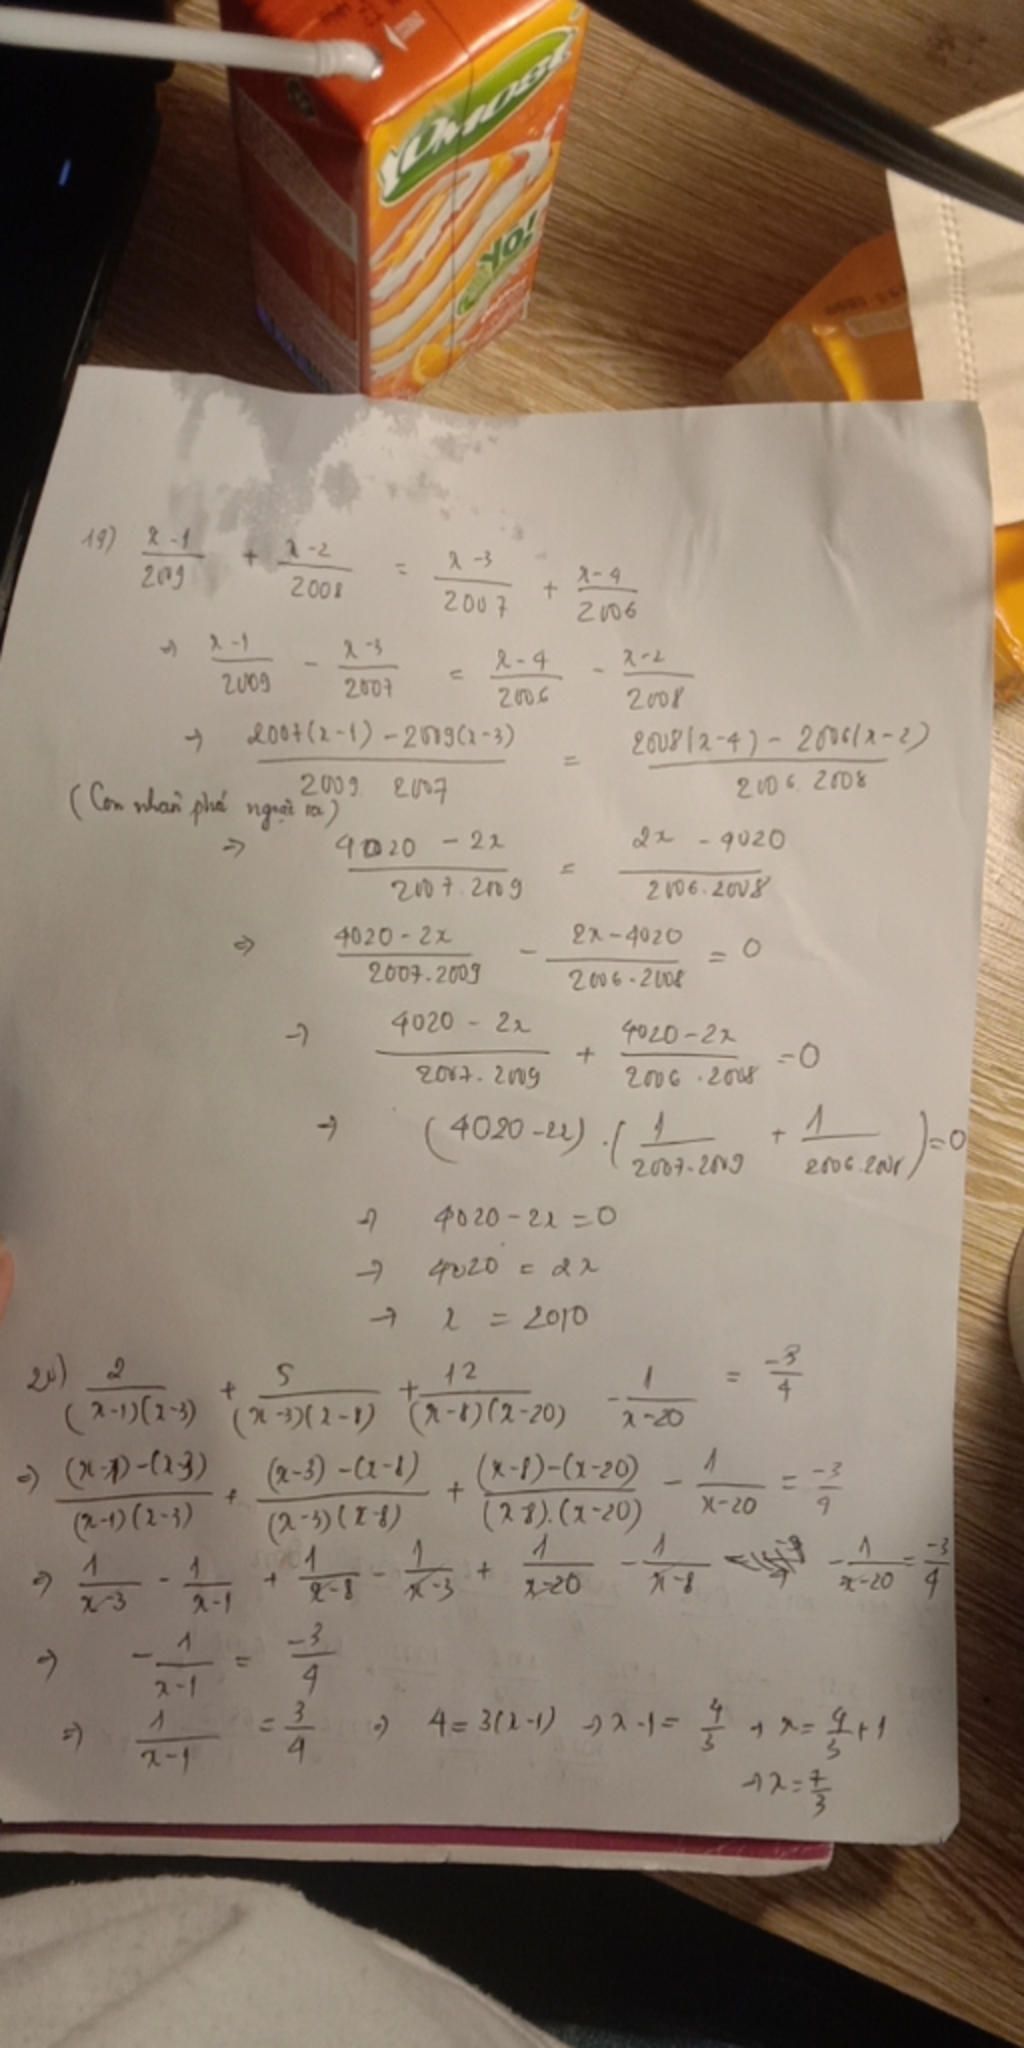 YOMOST
YO!
19) \frac{x-1}{2009} + \frac{x-2}{2008} = \frac{x-3}{2007} + \frac{x-4}{2006}
⇒ \frac{x-1}{2009} - \frac{x-3}{2007} = \frac{x-4}{2006} - \frac{x-2}{2008}
⇒ \frac{2007(x-1) - 2009(x-3)}{2009. 2007} = \frac{2008(x-4) - 2006(x-2)}{2006. 2008}
(Con nhân phá ngoặc ra)
⇒ \frac{4020 - 2x}{2007. 2009} = \frac{2x - 4020}{2006. 2008}
⇒ \frac{4020 - 2x}{2007. 2009} - \frac{2x - 4020}{2006. 2008} = 0
⇒ \frac{4020 - 2x}{2007. 2009} + \frac{4020 - 2x}{2006. 2008} = 0
⇒ (4020 - 2x) . (\frac{1}{2007. 2009} + \frac{1}{2006. 2008}) = 0
⇒ 4020 - 2x = 0
⇒ 4020 = 2x
⇒ x = 2010
20) \frac{2}{(x-1)(x-3)} + \frac{5}{(x-3)(x-8)} + \frac{12}{(x-8)(x-20)} - \frac{1}{x-20} = \frac{-3}{4}
⇒ \frac{(x-1)-(x-3)}{(x-1)(x-3)} + \frac{(x-3)-(x-8)}{(x-3)(x-8)} + \frac{(x-8)-(x-20)}{(x-8).(x-20)} - \frac{1}{x-20} = \frac{-3}{4}
⇒ \frac{1}{x-3} - \frac{1}{x-1} + \frac{1}{x-8} - \frac{1}{x-3} + \frac{1}{x-20} - \frac{1}{x-8} - \frac{1}{x-20} = \frac{-3}{4}
⇒ -\frac{1}{x-1} = \frac{-3}{4}
⇒ \frac{1}{x-1} = \frac{3}{4} ⇒ 4 = 3(x-1) ⇒ x-1 = \frac{4}{3} → x = \frac{4}{3} + 1
⇒ x = \frac{7}{3}